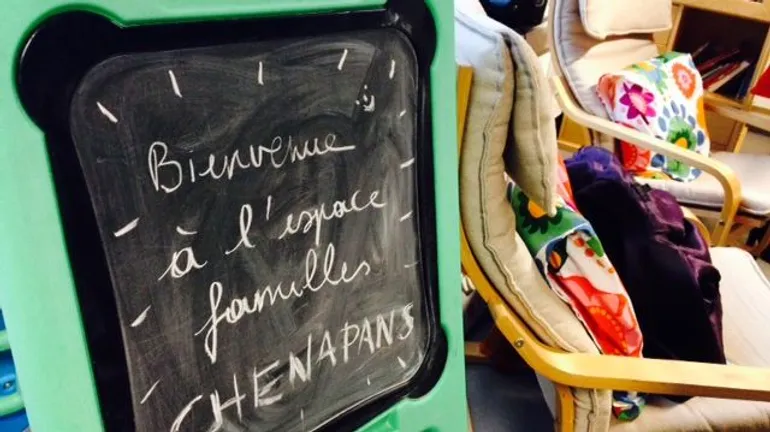 Bienvenue
à l'espace
familles
CHENAPANS